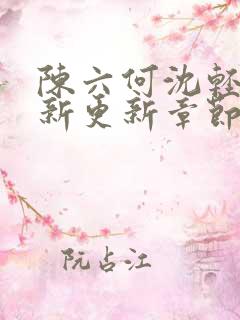 陳六何沈輕
新更新章節
阮占江